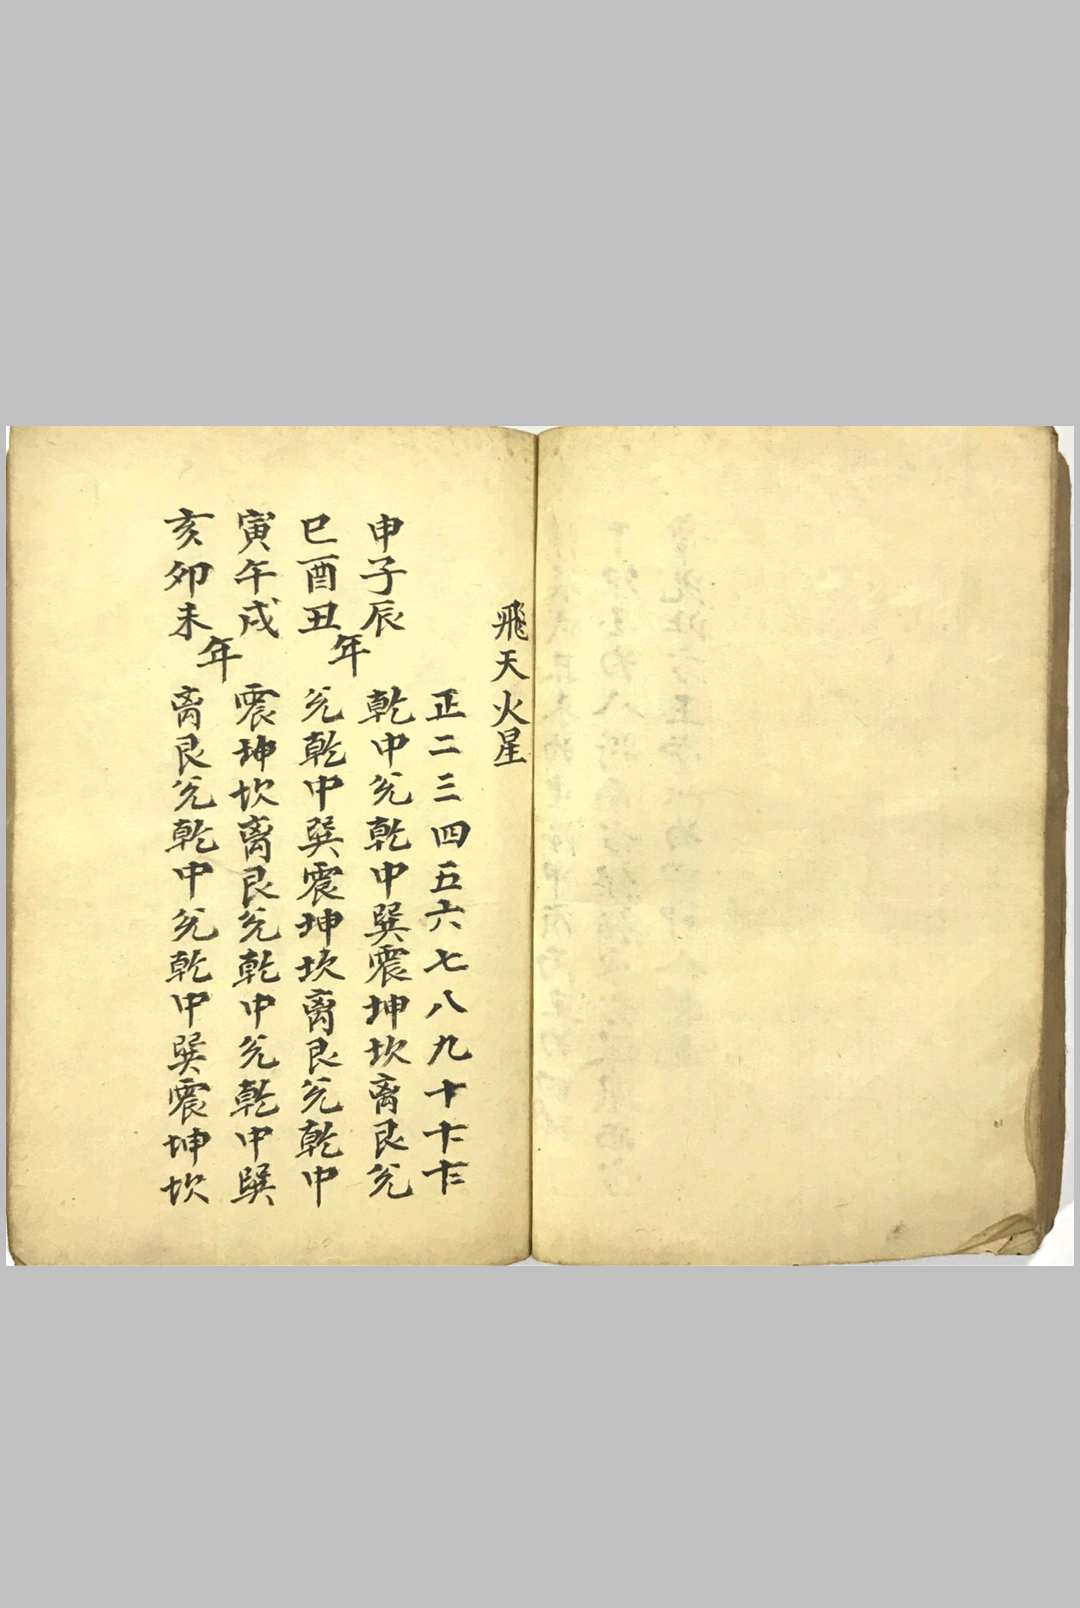 飛天火星
正二三四五六七八九十十一十二
申子辰
乾中兊乾中巽震坤坎离艮兊
年
巳酉丑
兊乾中巽震坤坎离艮兊乾中
寅午戌
震坤坎离艮兊乾中兊乾中巽
年
亥卯未
离艮兊乾中兊乾中巽震坤坎